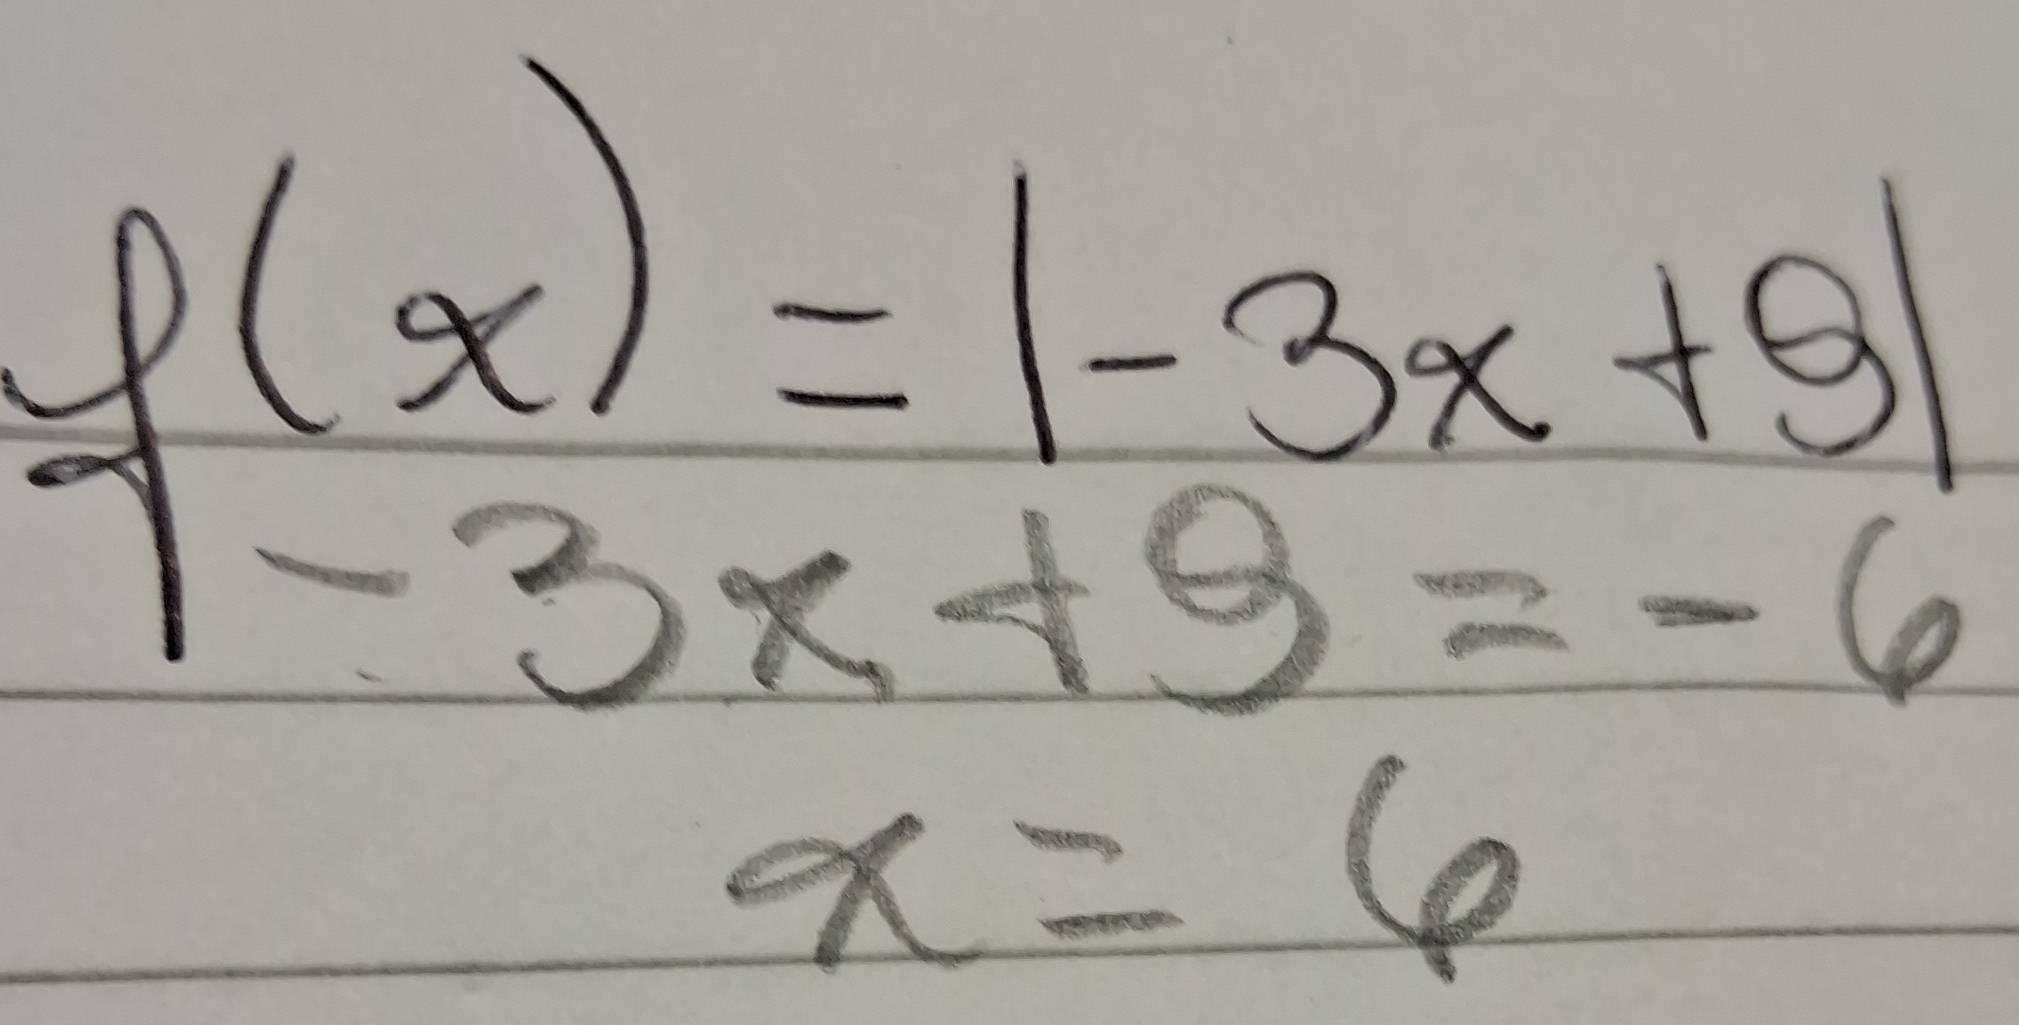 f(x) = |-3x +9|
-3x +9 = -6
x = 6